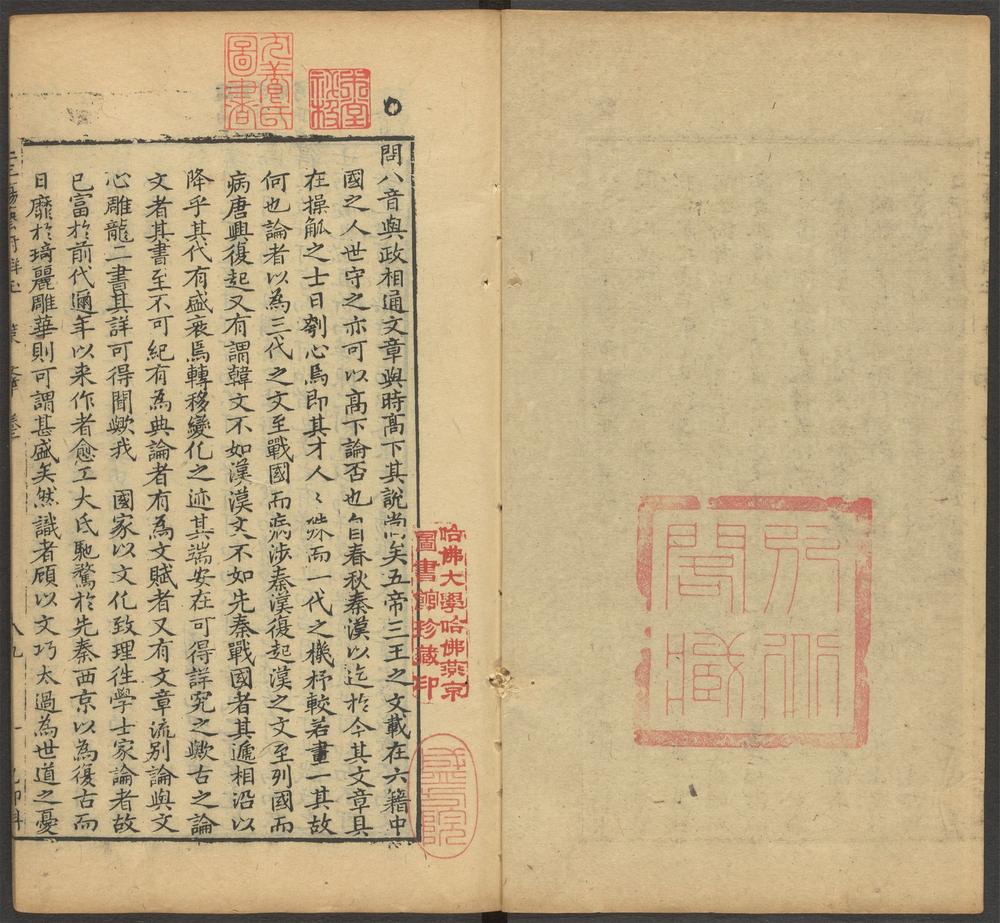 問八音與政相通文章與時高下其說尚矣五帝三王之文載在六籍中
國之人世守之亦可以高下論否也自春秋秦漢以迄於今其文章具
在操觚之士日刳心焉即其才人〻殊而一代之機杼較若畫一其故
何也論者以為三代之文至戰國而病涉秦漢復起漢之文至列國而
病唐興復起又有謂韓文不如漢漢文不如先秦戰國者其遞相沿以
降乎其代有盛衰焉轉移變化之迹其端安在可得詳究之歟古之論
文者其書至不可紀有為典論者有為文賦者又有文章流別論與文
心雕龍二書其詳可得聞歟我 國家以文化致理徃學士家論者故
已富於前代邇年以来作者愈工大氐馳騖於先秦西京以為復古而
日靡於琦麗雕華則可謂甚盛矣然識者顧以文巧太過為世道之憂
圖書
哈佛大學哈佛燕京
圖書館珍藏印